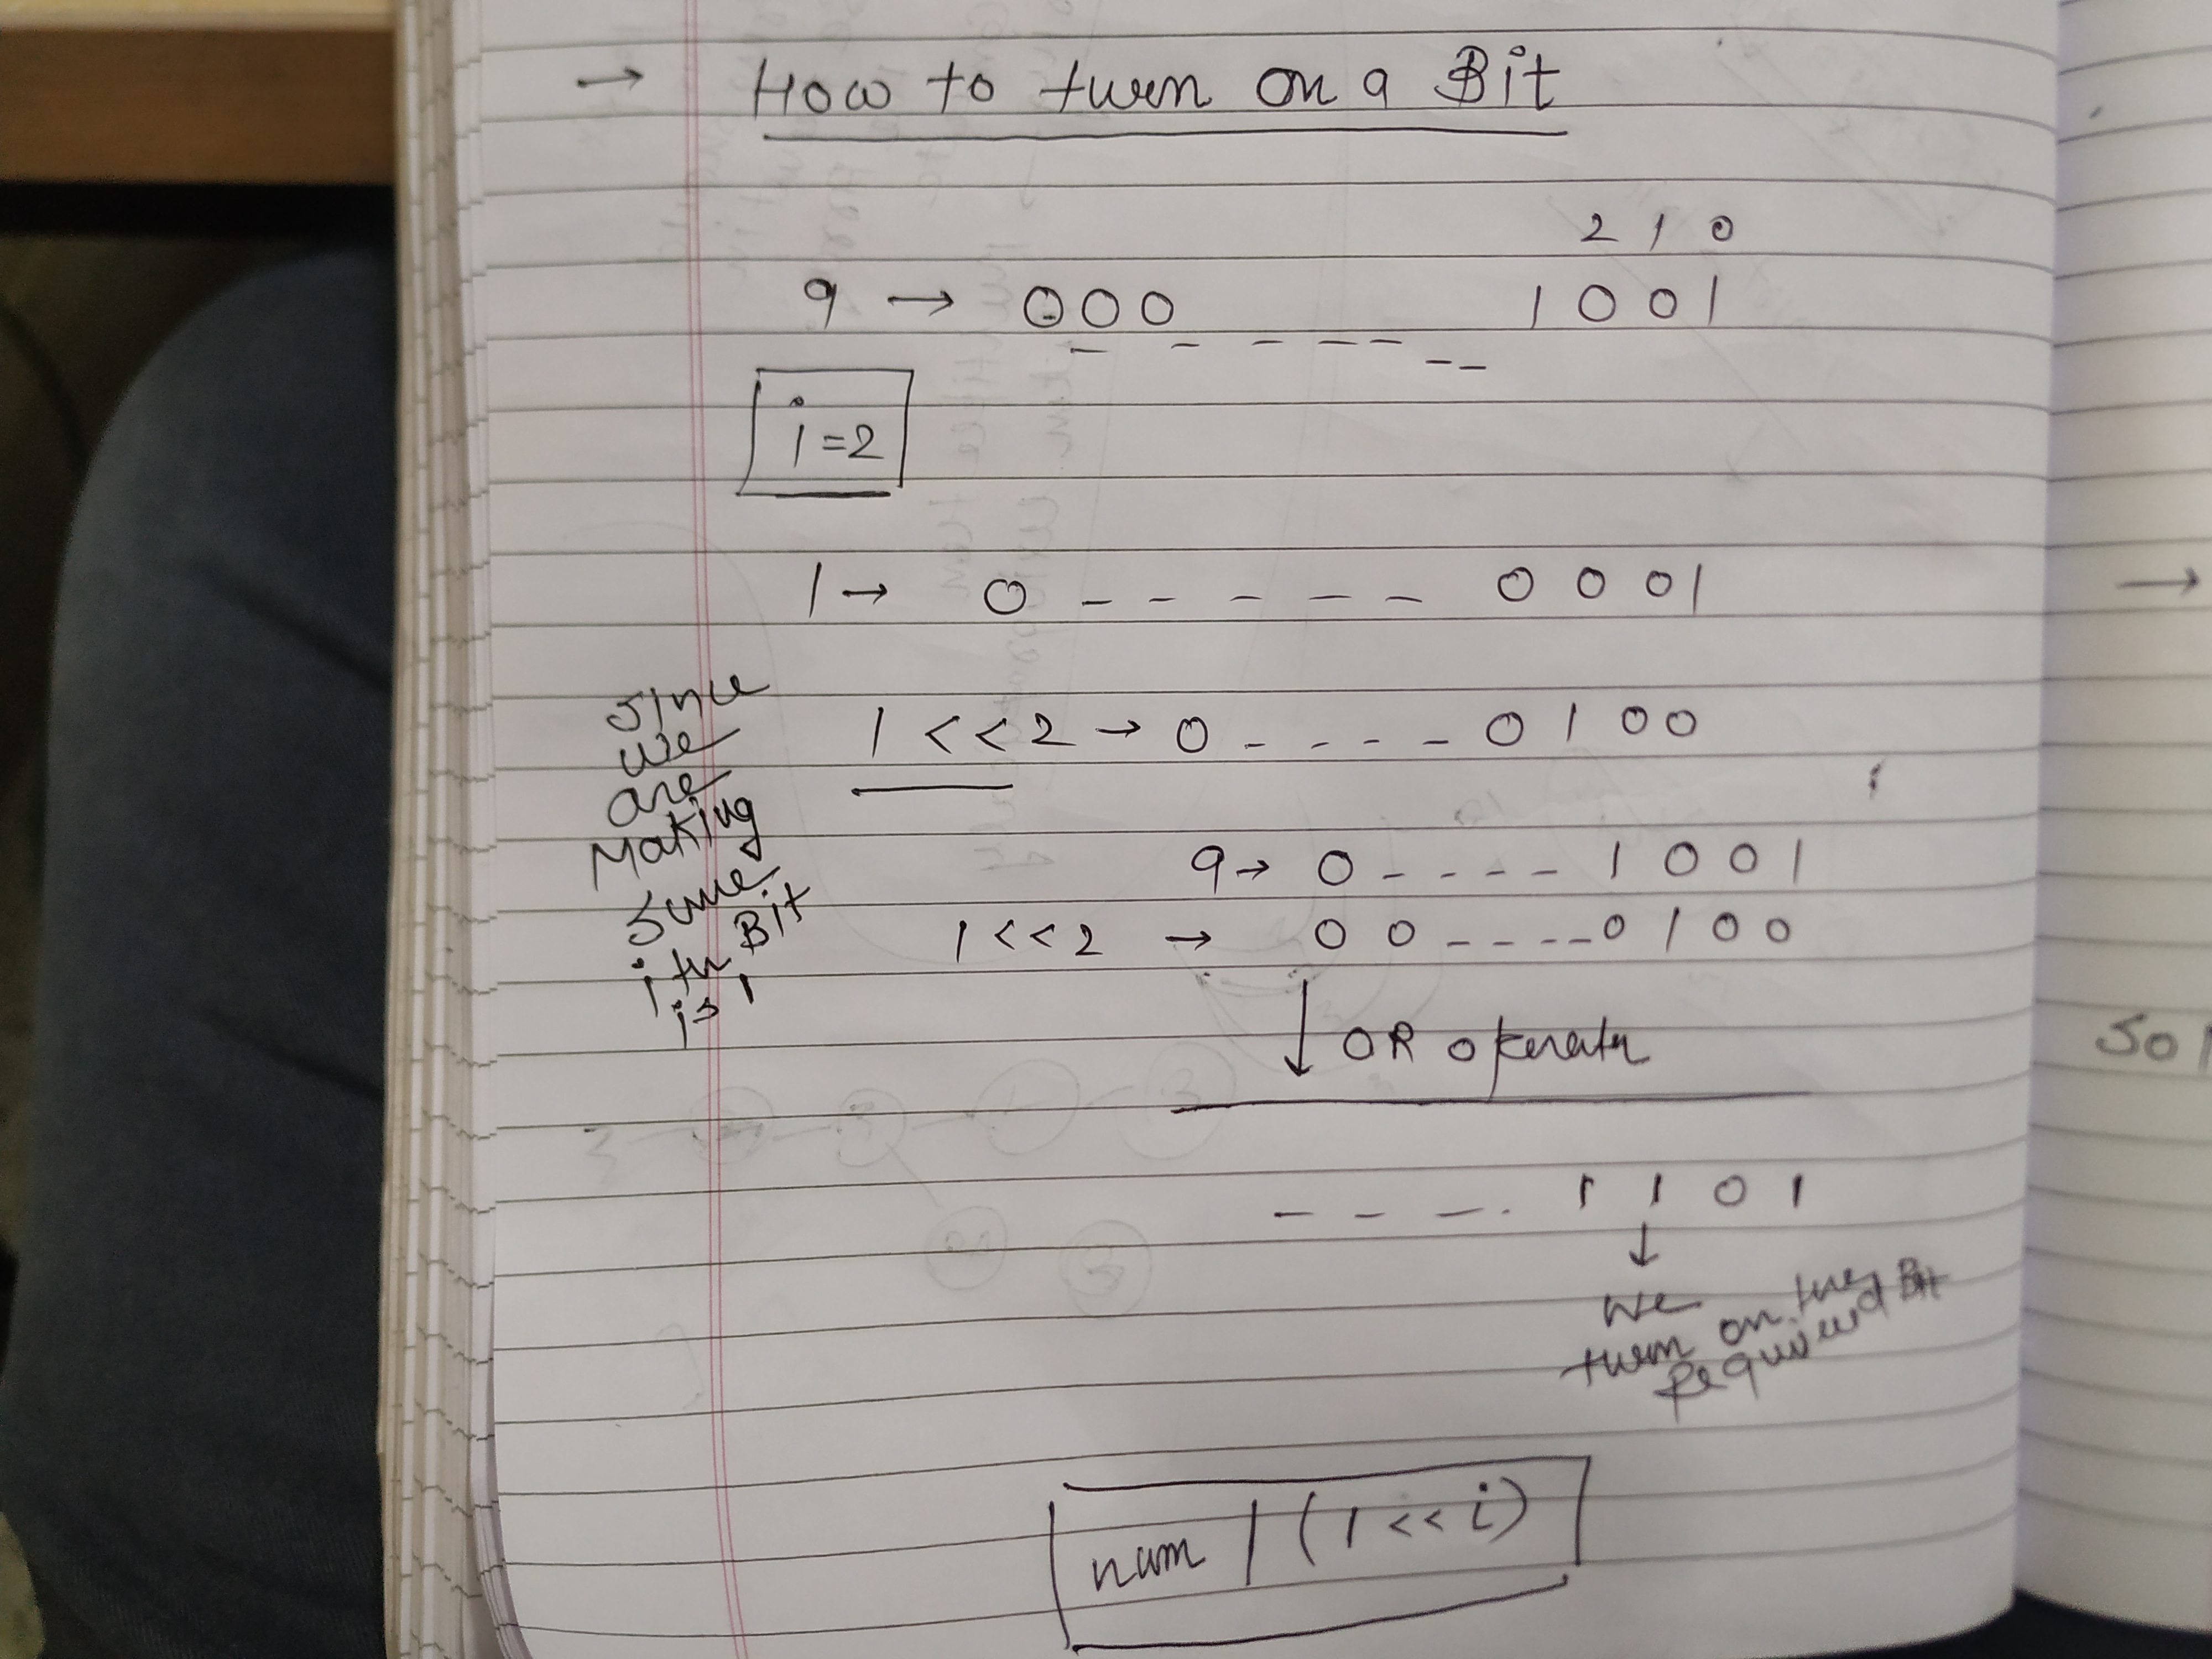 → How to turn on a Bit
2 1 0
9 → 000 _ _ _ _ _ _ _ 1001
i=2
1 → 0 _ _ _ _ _ 0 0 0 1
1 << 2 → 0 _ _ _ _ 0 1 0 0
since
we
are
Making
sure
ith Bit
is 1
9 → 0 _ _ _ _ 1 0 0 1
1 << 2 → 0 0 _ _ _ _ 0 1 0 0
↓ OR operator
_ _ _ _ 1 1 0 1
↓
we
turn on the
required Bit
num | (1 << i)
→